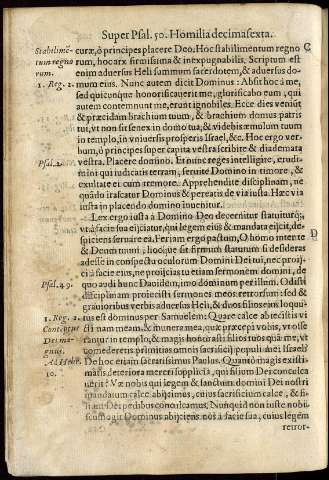 Super Psal. 50. Homilia decimasexta.
Stabilimē-
tum regno
rum.
1. Reg. 2.
Psal. 2.
Psal. 49.
1. Reg. 2.
Contēptus
Dei ma-
gnus.
Ad Hebr.
10.
curæ, ò principes placere Deo. Hoc stabilimentum regno
rum, hoc arx firmissima & inexpugnabilis. Scriptum est
enim aduersus Heli summum sacerdotem, & aduersus do-
mum eius. Nunc autem dicit Dominus: Absit hoc à me,
sed quicunque honorificauerit me, glorificabo eum, qui
autem contemnunt me, erunt ignobiles. Ecce dies veniūt
& præcidam brachium tuum, & brachium domus patris
tui, vt non sit senex in domo tua; & videbis æmulum tuum
in templo, in vniuersis prosperis Israel, &c. Hoc ergo ver-
bum, ò principes super capita vestra scribite & diademata
vestra. Placere domino. Et nunc reges intelligite, erudi-
mini qui iudicatis terram, seruite Domino in timore, &
exultate ei cum tremore. Apprehendite disciplinam, ne
quādo irascatur Dominus & pereatis de via iusta. Hæc via
iusta in placendo domino inuenitur.
C
Lex ergo iusta à Domino Deo decernitur statuiturq́;
vt à facie sua eijciatur, qui legem eius & mandata eijcit, de-
spiciens seruare ea. Feriam ergo pactum, O homo mente
& Deum timens, hoc que sit firmum statutum si desideras
adesse in conspectu oculorum Domini Dei tui, nec proij-
ci à facie eius, ne proijcias tu etiam sermonem domini, de
D
quo audi hunc Dauidem, imo dominum per illum. Odisti
disciplinam proiecisti sermones meos retrorsum: sed &
grauioribus verbis aduersus Heli, & duos filios eius loquu-
tus est dominus per Samuelem: Quare calce abiecistis vi
sti nam meam, & munera mea, quæ præcepi vobis, vt offe
rantur in templo, & magis honorasti filios tuos quā me, vt
comederetis primitias omnis sacrificij populi mei Israel?
De hoc etiam sacratissimus Paulus. Quanto magis existi-
matis deteriora mereri supplicia, qui filium Dei conculca
uerit? Væ nobis qui legem & sanctum domini Dei nostri
mandatum calce abijcimus, cuius sacrificium calce, & fi-
lium Dei pedibus conculcamus. Nunquid non iuste nobi-
scum agit Dominus abijciens nos à facie sua, cuius legem
retror-